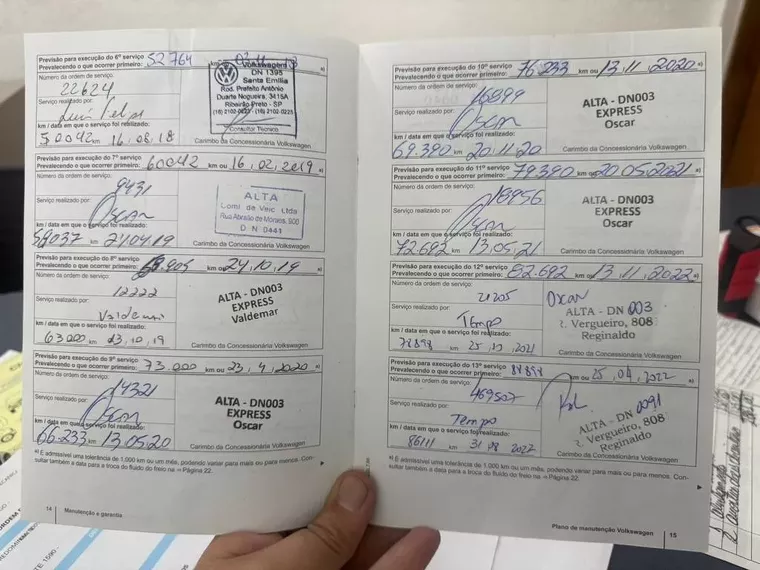 Previsão para execução do 6º serviço
Prevalecendo o que ocorrer primeiro: 52 764
Número da ordem de serviço:
22624
Serviço realizado por:
km / data em que o serviço foi realizado:
50042 km 16.08.18
Volkswagen
DN 1395
Santa Emília
Rod. Prefeito Antônio
Duarte Nogueira, 3415A
Ribeirão Preto - SP
Consultor Técnico
Carimbo da Concessionária Volkswagen
Previsão para execução do 7º serviço
Prevalecendo o que ocorrer primeiro: 60042 km ou 16.02.2019 a)
Número da ordem de serviço:
9431
Serviço realizado por:
Oscar
km / data em que o serviço foi realizado:
km
ALTA
Comi de Veic Ltda
Rua Abraão de Moraes, 900
D N 0441
Carimbo da Concessionária Volkswagen
Previsão para execução do 8º serviço
Prevalecendo o que ocorrer primeiro: km ou 24.10.19 a)
Número da ordem de serviço:
12222
Serviço realizado por:
Valdemar
km / data em que o serviço foi realizado:
63000 km 03.10.19
ALTA - DN003
EXPRESS
Valdemar
Carimbo da Concessionária Volkswagen
Previsão para execução do 9º serviço
Prevalecendo o que ocorrer primeiro: 73.000 km ou 23.4.2020 a)
Número da ordem de serviço:
14321
Serviço realizado por:
Oscar
km / data em que o serviço foi realizado:
66.233 km 13.05.20
ALTA - DN003
EXPRESS
Oscar
Carimbo da Concessionária Volkswagen
a) É admissível uma tolerância de 1.000 km ou um mês, podendo variar para mais ou para menos. Con-
sultar também a data para a troca do fluido do freio na ⇒ Página 22.
14 Manutenção e garantia
Previsão para execução do 10º serviço
Prevalecendo o que ocorrer primeiro: 76.233 km ou 13.11.2020 a)
Número da ordem de serviço:
16899
Serviço realizado por:
Oscar
km / data em que o serviço foi realizado:
69.390 km 20.11.20
ALTA - DN003
EXPRESS
Oscar
Carimbo da Concessionária Volkswagen
Previsão para execução do 11º serviço
Prevalecendo o que ocorrer primeiro: 79.390 km ou 20.05.2021 a)
Número da ordem de serviço:
18956
Serviço realizado por:
Oscar
km / data em que o serviço foi realizado:
72.692 km 13.05.21
ALTA - DN003
EXPRESS
Oscar
Carimbo da Concessionária Volkswagen
Previsão para execução do 12º serviço
Prevalecendo o que ocorrer primeiro: 82.692 km ou 13.11.2022 a)
Número da ordem de serviço:
21205
Serviço realizado por:
Tempo
km / data em que o serviço foi realizado:
78898 km 25 2021
Oscar
ALTA - DN 003
R. Vergueiro, 808
Reginaldo
Carimbo da Concessionária Volkswagen
Previsão para execução do 13º serviço
Prevalecendo o que ocorrer primeiro: 88898 km ou 25.04.2022 a)
Número da ordem de serviço:
469507
Serviço realizado por:
Tempo
km / data em que o serviço foi realizado:
86111 km 31 08 2022
ALTA - DN 0091
R. Vergueiro, 808
Reginaldo
Carimbo da Concessionária Volkswagen
a) É admissível uma tolerância de 1.000 km ou um mês, podendo variar para mais ou para menos. Con-
sultar também a data para a troca do fluido do freio na ⇒ Página 22.
Plano de manutenção Volkswagen 15